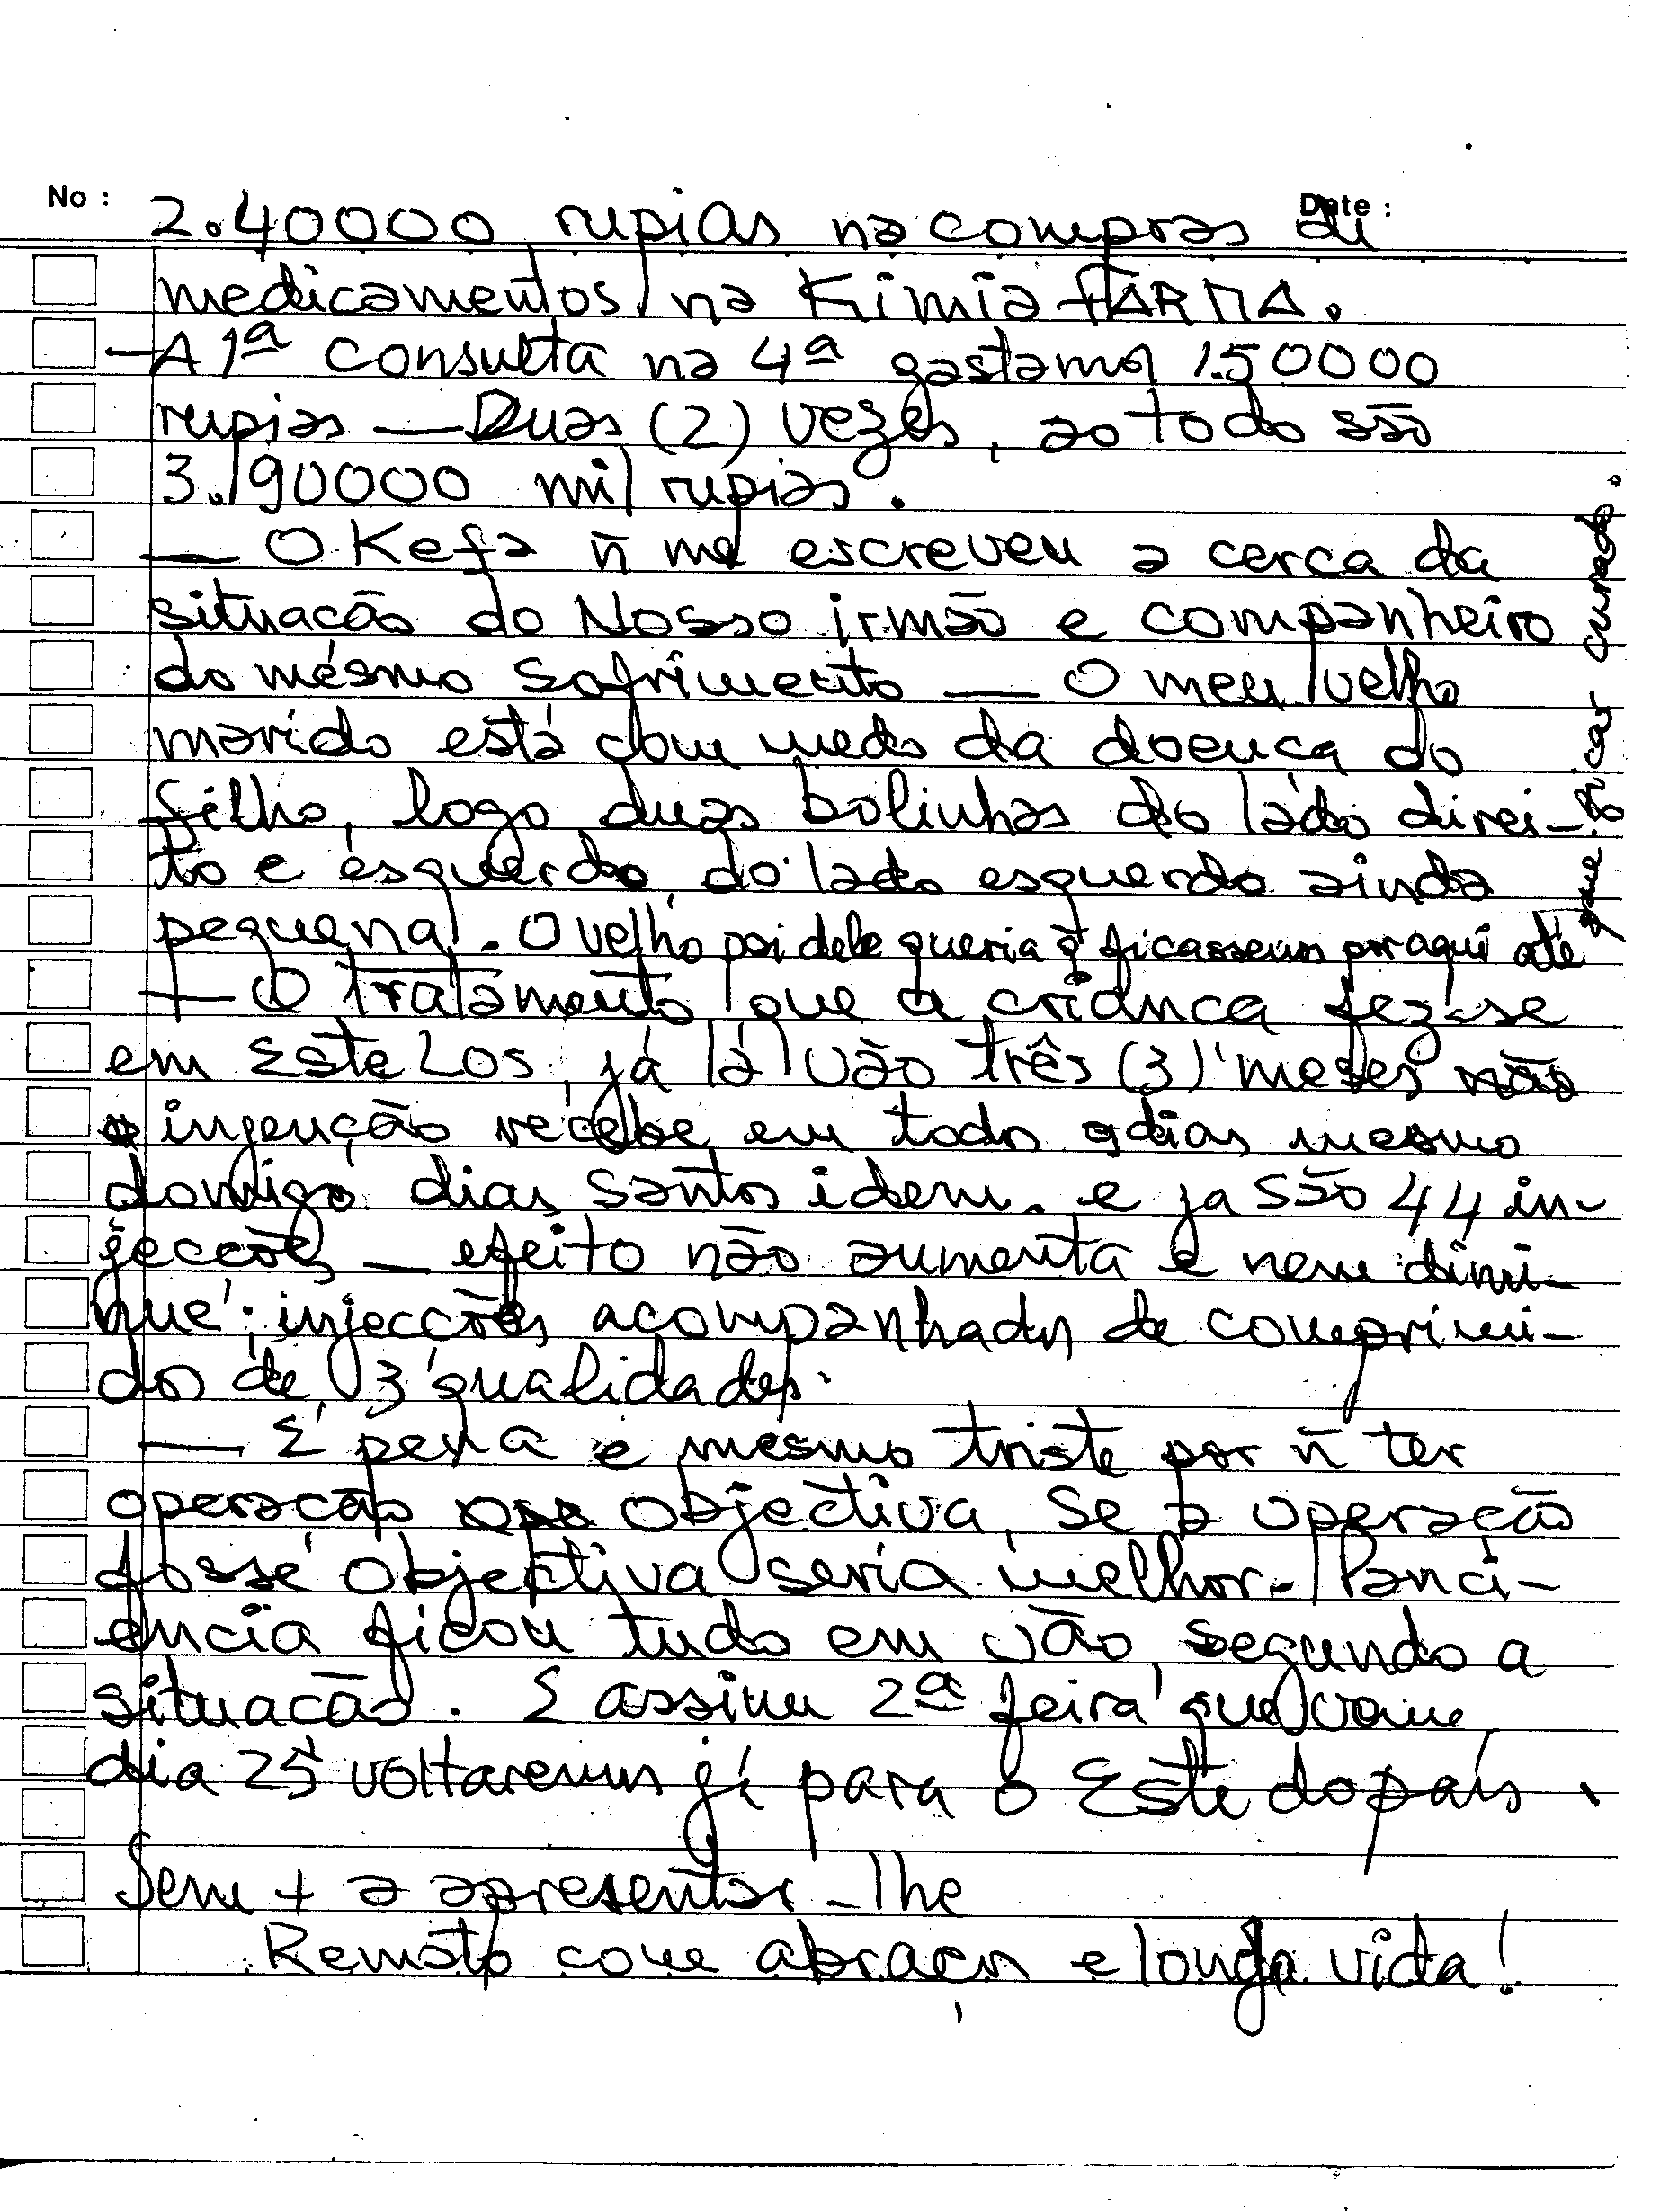 No :
Date :
2.40000 rupias na compras de
medicamentos na Kimia FARMA.
— A 1ª consulta na 4ª gastamos 1.50000
rupias — Duas (2) vezes, ao todo são
3.190000 mil rupias.
— O Kefa ñ me escreveu a cerca da
situacão do Nosso irmão e companheiro
do mésmo sofrimento — O meu velho
marido está com medo da doenca do
filho, logo duas bolinhas do lado direi-
to e esquerdo, do lado esquerdo ainda
pequena. O velho pai dele queria q̃ ficassem por aqui até
que ficar curado.
— O Tratamento que a crianca fez-se
em Este Los, já lá vão três (3) meses
injeução recebe em todos dias mesmo
domigo dias santos idem. e ja são 44 in-
jeccões — efeito não aumenta e nem dimi-
nue: injeccões acompanhados de comprimi-
dos de 3 qualidades.
— É pena e mesmo triste por ñ ter
operacão objectiva, Se a operacão
fosse objectiva seria melhor. Panci-
ência ficou tudo em vão segundo a
situacão. E assim 2ª feira que vem
dia 25 voltaremos já para o Este do país.
Sem + a apresentar-lhe
Remato com abracos e longa vida!